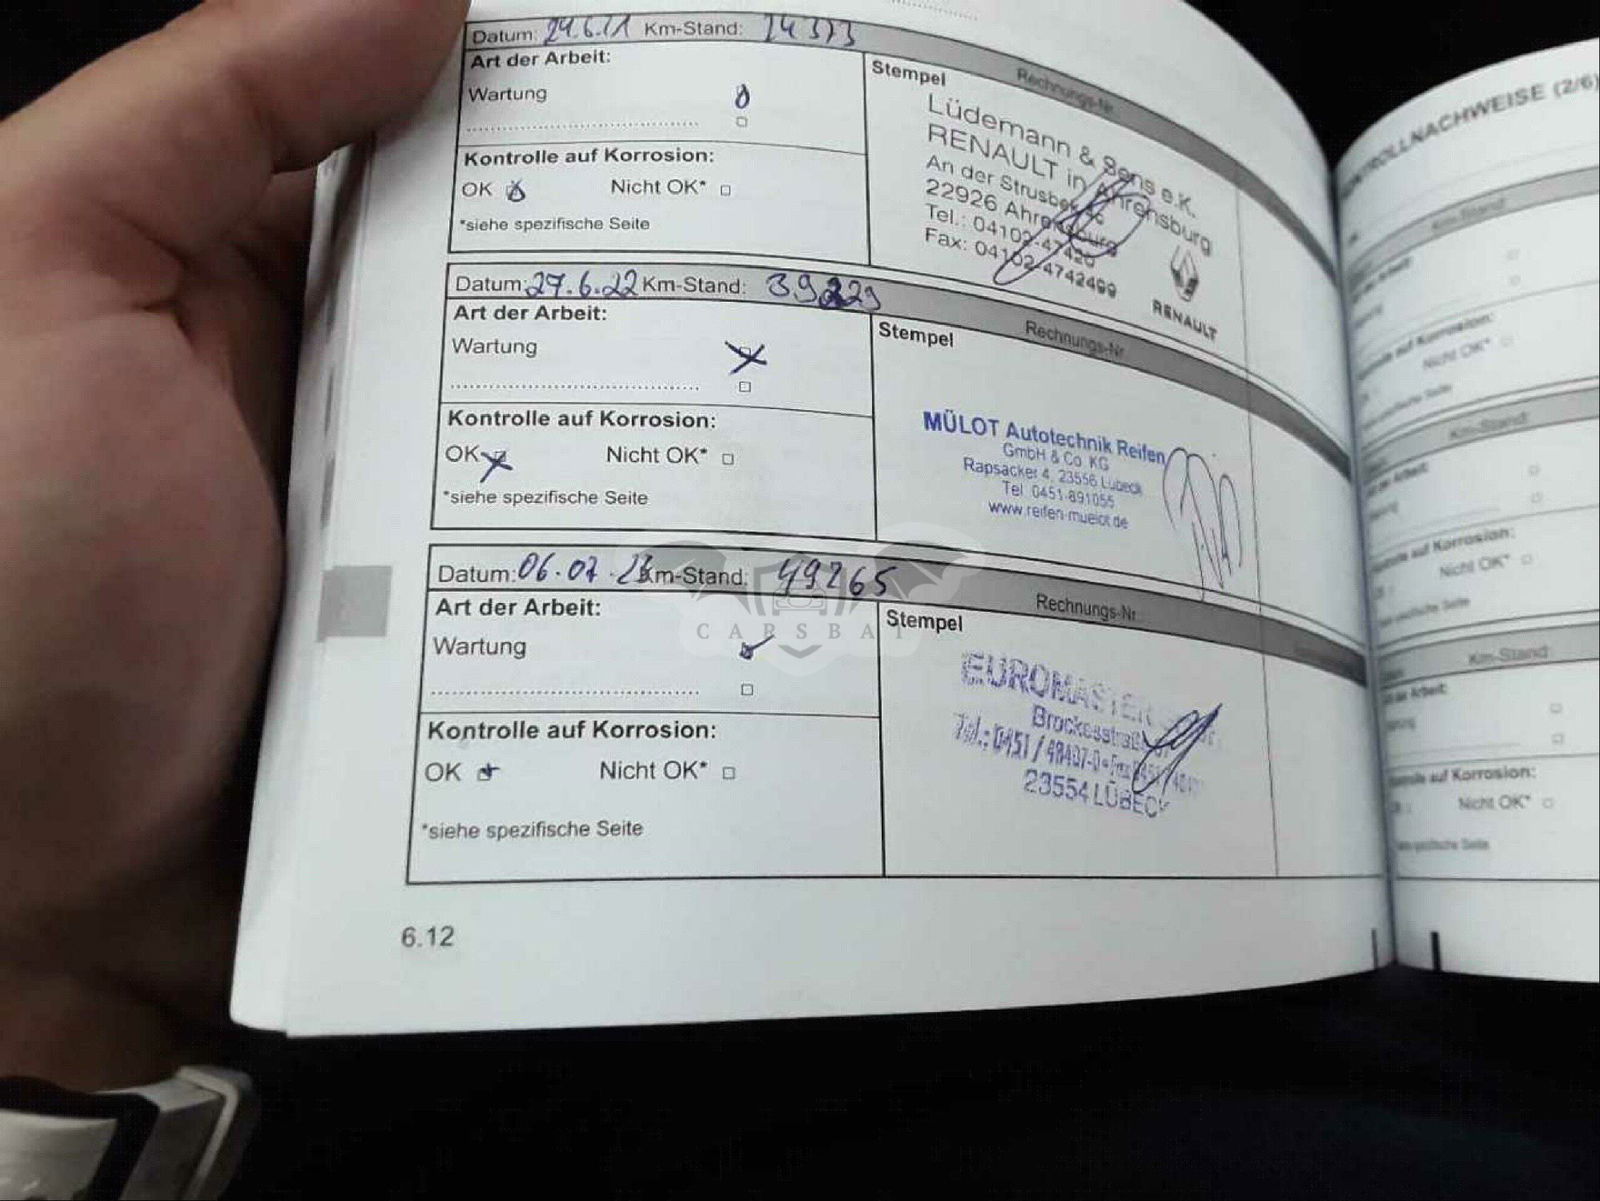 Datum: 24.6.21 Km-Stand: 24373
Art der Arbeit:
Rechnungs-Nr.
Wartung
Stempel
Lüdemann & Sens e.K.
RENAULT in Ahrensburg
An der Strusbek
22926 Ahrensburg
Tel.: 04102-47420
Fax: 04102-4742499
RENAULT
Kontrolle auf Korrosion:
OK Nicht OK*
*siehe spezifische Seite
Datum: 27.6.22 Km-Stand: 39229
Art der Arbeit:
Rechnungs-Nr
Wartung
Stempel
MÜLOT Autotechnik Reifen
GmbH & Co. KG
Rapsacker 4, 23556 Lübeck
Tel. 0451-891055
www.reifen-muelot.de
Kontrolle auf Korrosion:
OK Nicht OK*
*siehe spezifische Seite
Datum: 06.07.23 Km-Stand: 49265
Art der Arbeit:
Rechnungs-Nr
CARSBAT
Wartung
Stempel
EUROMASTER
Brockesstraße
Tel.: 0451 / 48407-0 • Fax 0451
23554 LÜBECK
Kontrolle auf Korrosion:
OK Nicht OK*
*siehe spezifische Seite
6.12
KONTROLLNACHWEISE (2/6)
Km-Stand:
Nicht OK*
Km-Stand:
auf Korrosion:
Nicht OK*
Km-Stand:
Kontrolle auf Korrosion:
Nicht OK*